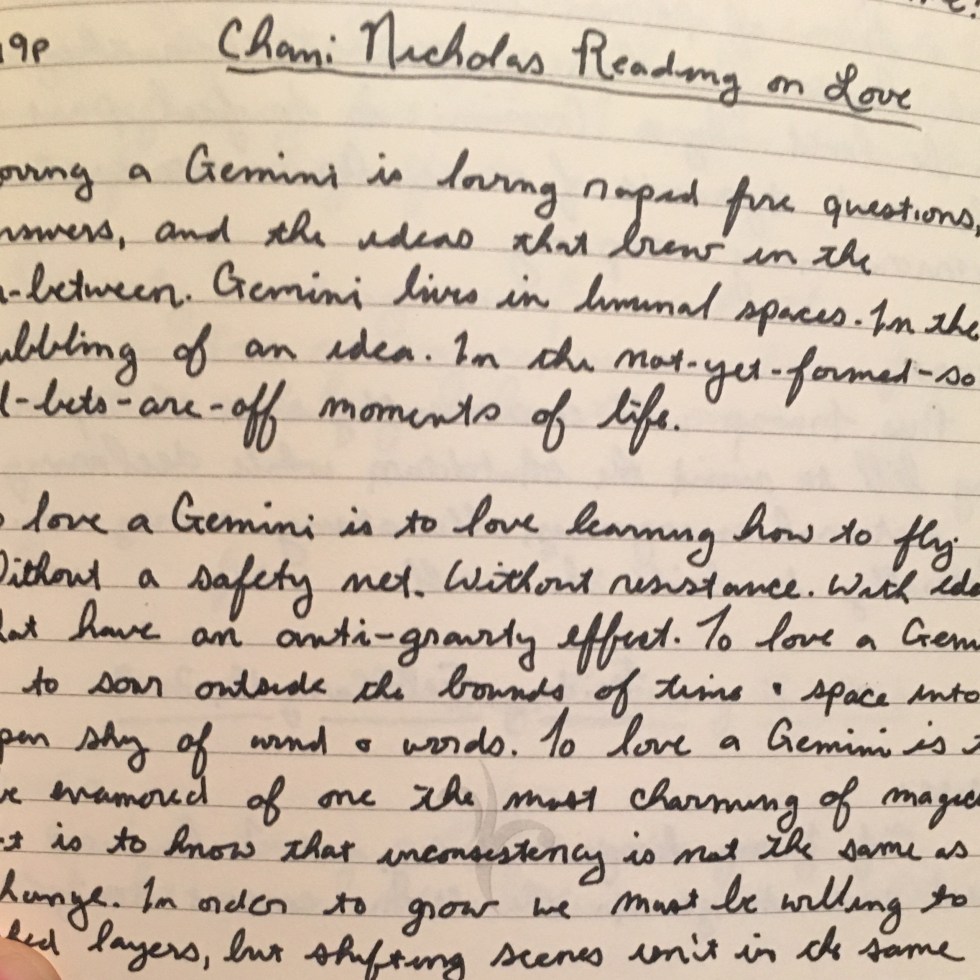 19p Chani Nicholas Reading on Love
oving a Gemini is loving rapid fire questions,
nswers, and the ideas that brew in the
n-between. Gemini lives in liminal spaces. In the
ubbling of an idea. In the not-yet-formed-so
l-bets-are-off moments of life.
o love a Gemini is to love learning how to fly
Without a safety net. Without resistance. With ide
hat have an anti-gravity effect. To love a Gem
to soar outside the bounds of time & space into
pen sky of wind & words. To love a Gemini is t
ve enamored of one the most charming of magic
t is to know that inconsistency is not the same as
hange. In order to grow we must be willing to
hed layers, but shifting scenes isn't in the same